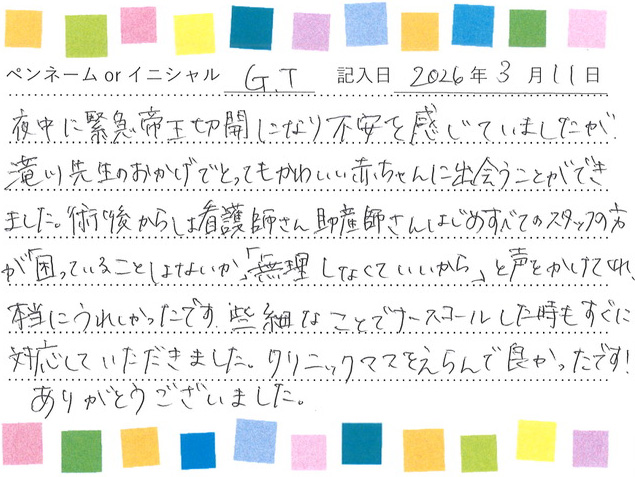 ペンネーム or イニシャル G.T 記入日 2026年3月11日
夜中に緊急帝王切開になり不安を感じていましたが
滝川先生のおかげでとってもかわいい赤ちゃんに出会うことができ
ました。術後からは看護師さん助産師さんはじめすべてのスタッフの方
が「困っていることはないか」「無理しなくていいから」と声をかけてくれ、
本当にうれしかったです。些細なことでナースコールした時もすぐに
対応していただきました。クリニックママをえらんで良かったです!
ありがとうございました。